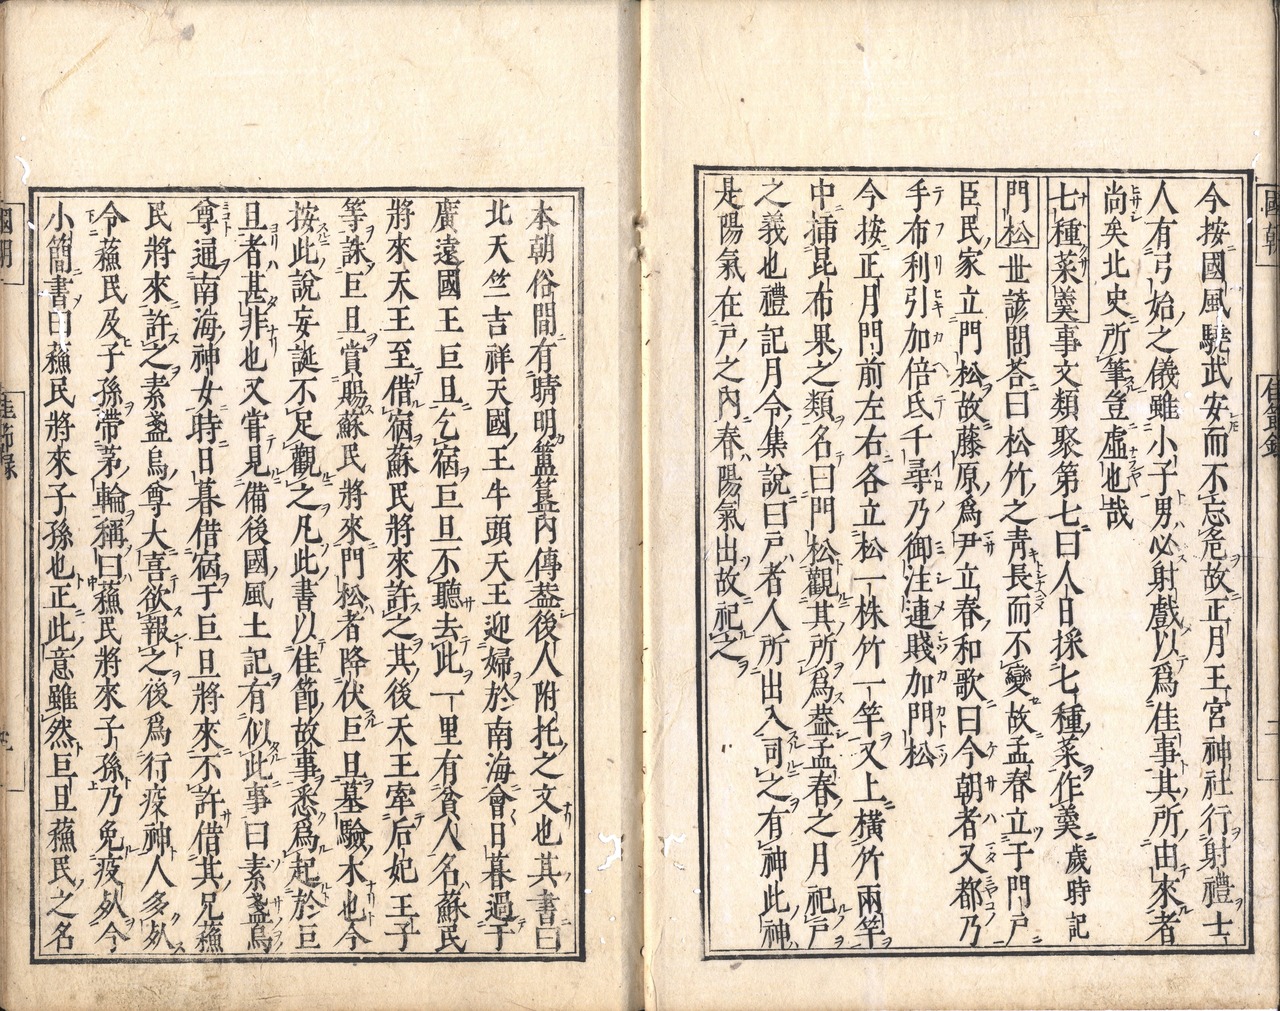 今按國風驍武安而不忘危故正月王宮神社行射禮士
人有弓始之儀雖小子男必射戲以爲佳事其所由來者
尚矣北史所筆豈虛也哉
七種菜羹事文類聚第七曰人日採七種菜作羹歲時記
門松世諺問荅曰松竹之靑長而不變故孟春立于門戶
臣民家立門松故藤原爲尹立春和歌曰今朝者又都乃
手布利引加倍氐千尋乃御注連賤加門松
今按正月門前左右各立松一株竹一竿又上橫竹兩竿
中插昆布果之類名曰門松觀其所爲葢孟春之月祀戶
之義也禮記月令集說曰戶者人所出入司之有神此神
是陽氣在戶之內春陽氣出故祀之
本朝俗間有晴明簠簋內傳葢後人附托之文也其書曰
北天竺吉祥天國王牛頭天王迎婦於南海會日暮過于
廣遠國王巨旦乞宿巨旦不聽去此一里有貧人名蘇民
將來天王至借宿蘇民將來許之其後天王牽后妃王子
等誅巨旦賞賜蘇民將來門松者降伏巨旦墓驗木也今
按此說妄誕不足觀之凡此書以佳節故事悉爲起於巨
且者甚非也又嘗見備後國風土記有似此事曰素盞烏
尊通南海神女時日暮借宿于巨旦將來不許借其兄蘓
民將來許之素盞烏尊大喜欲報之後爲行疫神人多死
令蘓民及子孫帶茅輪稱曰蘓民將來子孫乃免疫死今
小簡書曰蘓民將來子孫也正此意雖然巨旦蘓民之名